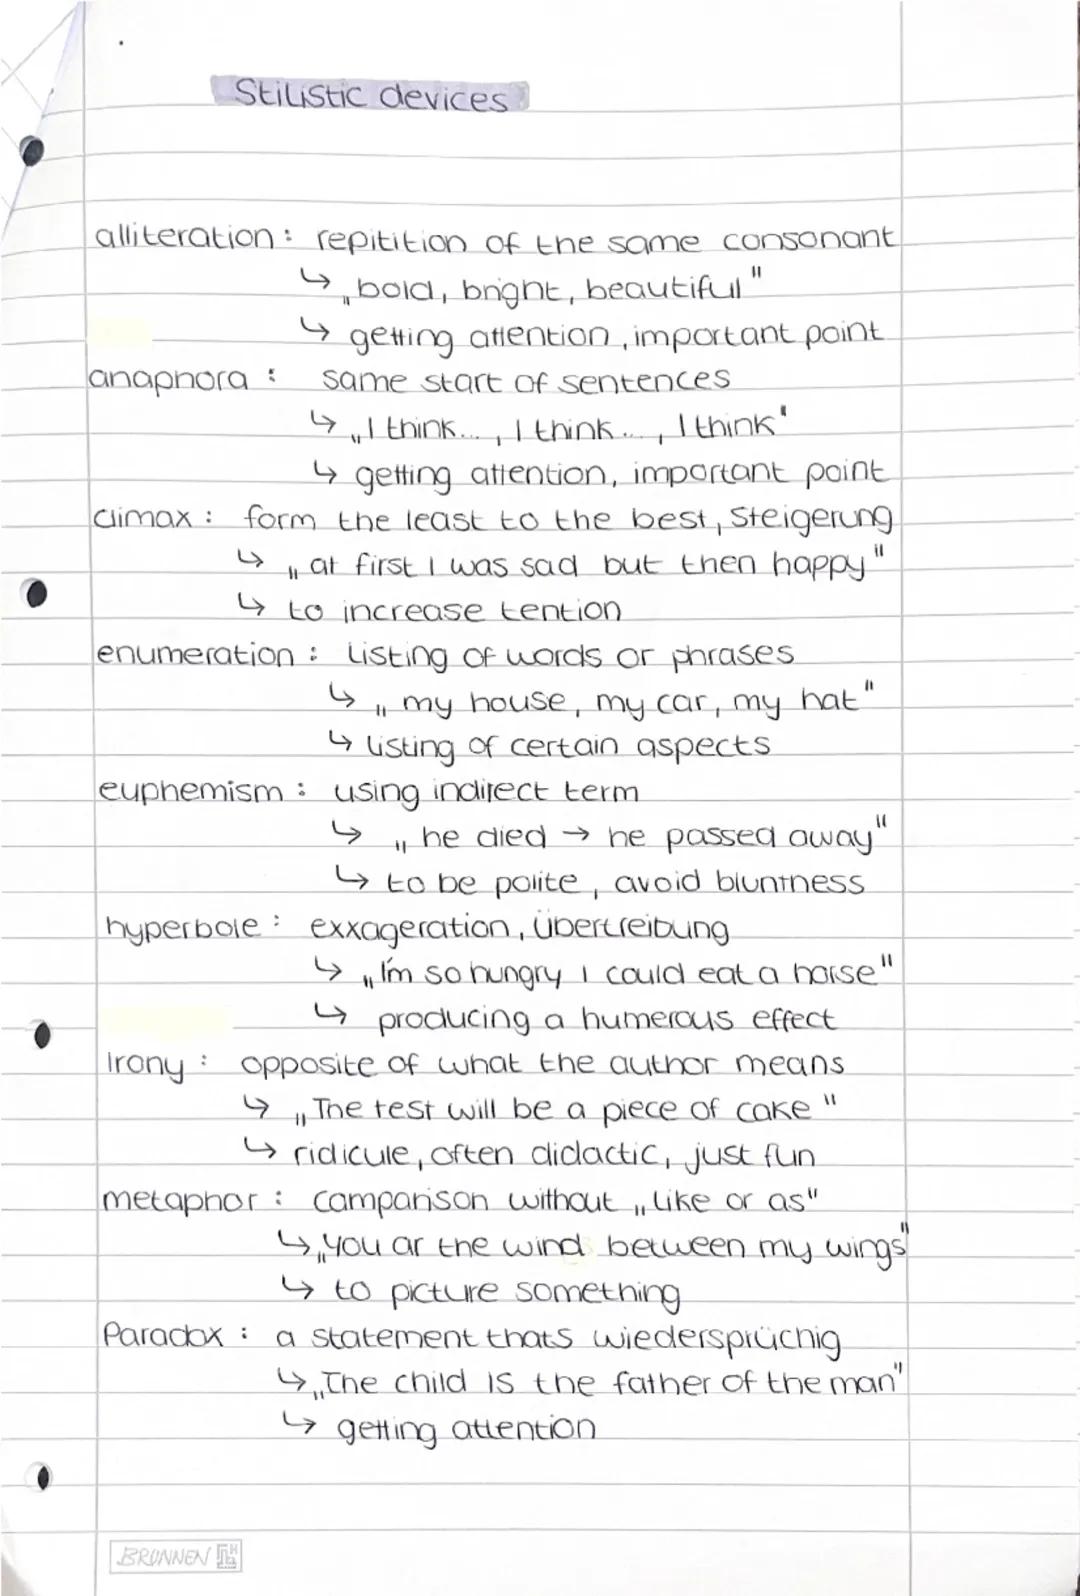 Stilistic devices
alliteration : repitition of the same consonant
↳ „bold, bright, beautiful"
↳ getting attention, important point
anaphora : same start of sentences
↳ „I think..., I think..., I think"
↳ getting attention, important point
climax : form the least to the best, Steigerung
↳ „at first I was sad but then happy"
↳ to increase tention
enumeration : Listing of words or phrases
↳ „my house, my car, my hat"
↳ listing of certain aspects
euphemism : using indirect term
↳ „he died → he passed away"
↳ to be polite, avoid bluntness
hyperbole : exxageration, Übertreibung
↳ „I'm so hungry I could eat a horse"
↳ producing a humerous effect
Irony : opposite of what the author means
↳ „The test will be a piece of cake"
↳ ridicule, often didactic, just fun
metaphor : comparison without „like or as"
↳ „You ar the wind between my wings"
↳ to picture something
Paradox : a statement thats wiedersprüchig
↳ „The child is the father of the man"
↳ getting attention
BRUNNEN